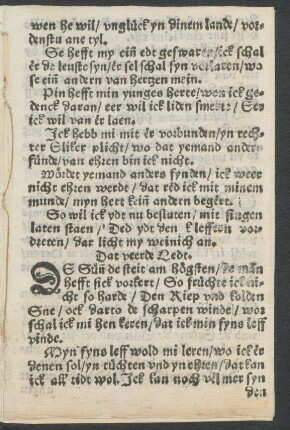 wen he wil/ vnglück yn dinem lande/ vor-
denstu ane tyl.
Se hefft my ein edt geswaren/ ick schal
ër de leuste syn/ ër sel schal syn verlaren/ wo
se ein andern van hertzen mein.
Pin hefft min yunges herte/ wen ick ge-
denck daran/ eer wil ick liden smerte/
ick wil van ër laen.
Ick hebb mi mit ër vorbunden/ yn rech-
ter plicht/ wo dat yemand anders
fünde/ van ehren bin ick nicht.
Wördet yemand anders fynden/ ick weer
nicht ehren werde/ dat red ick mit minem
munde/ myn hert kein andern begert.
So wil ick ydt nu besluten/ mit singen
laten staen/ Ded ydt den vor-
dreten/ dar licht my weinich an.
Dat veerde Ledt.
DE Sün de steit am högsten/ de mån
hefft sick vorkert/ So früchte ick ni-
cht so harde/ Den Riep vnd kolden
Sne/ ock darto de scharpen winde/ wor
schal ick mi hen keren/ dat ick min fyns leff
vinde.
Myn fyns leff wold mi leren/ wo ick ër
denen sol/ yn tüchten vnd yn ehren/ dat kan
ick all tidt wol. Ick kan noch vil mer syn
den